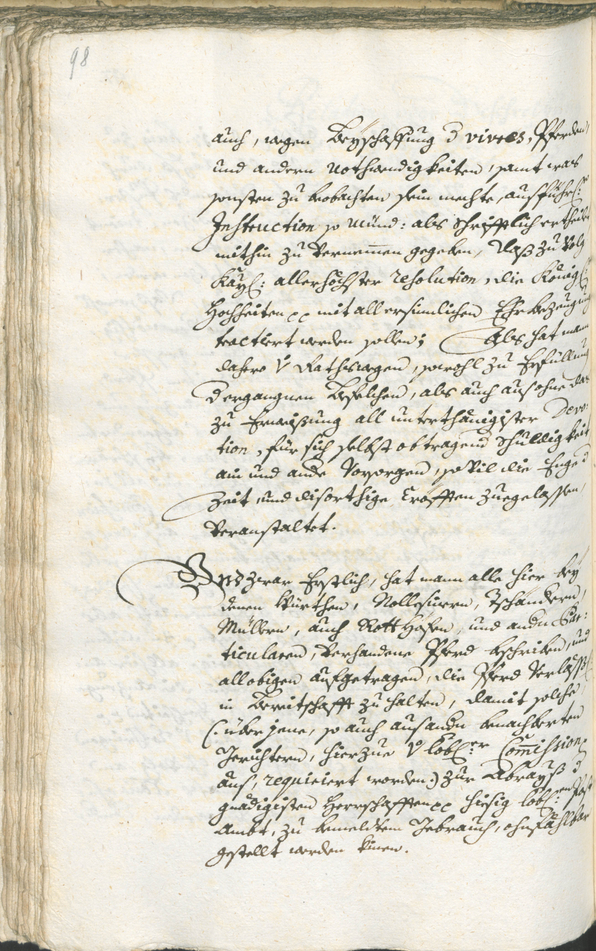 98
auch, wegen Beyschaffung d vivres, Pferden,
und andern nothwendigkeiten, samt was
sonsten zu beobachten sein mechte, ausführl:
Instruction so münd: als schrifftlich ertheilt
mithin zu vernemen gegeben, daß zu volg
Kayl: allerhöchster resolution, die Königl:
Hochheiten pp mit all ersinnlichen Ehrbezeugung
tractiert werden sollen; Als hat mann
dahero v Rathswegen, sowohl zu Erfüllung
d ergangnen Befelchen, als auch aus ohne das
zu Erweisung all unterthänigister Devo-
tion, für sich selbst obtragend Schuldigkeit
ain und ande Vorsorgen, so vil die Enge d
Zeit, und disorthige Crafften zuegelassen,
veranstaltet.
Und zwar Erstlich, hat mann alle hier bey
denen Würthen, Rollesuren, Tschandern,
Müllern, auch Rott Hofen, und andn Par-
ticularen, verhandene Pferd beschriben, und
all obigen aufgetragen, die Pferd verläßl:
in Bereitschafft zu halten, damit solche
(: über jene, so auch aus andn benachberten
Gerichtern, hierzue v löbl:r Commission
aus, requiriert worden:) zur Abrayß d
gnädigisten Herrschafften pp hiesig löbl:en Post
Ambt, zu bemeldtem Gebrauch, ohnfählbar
gestellt werden könen.